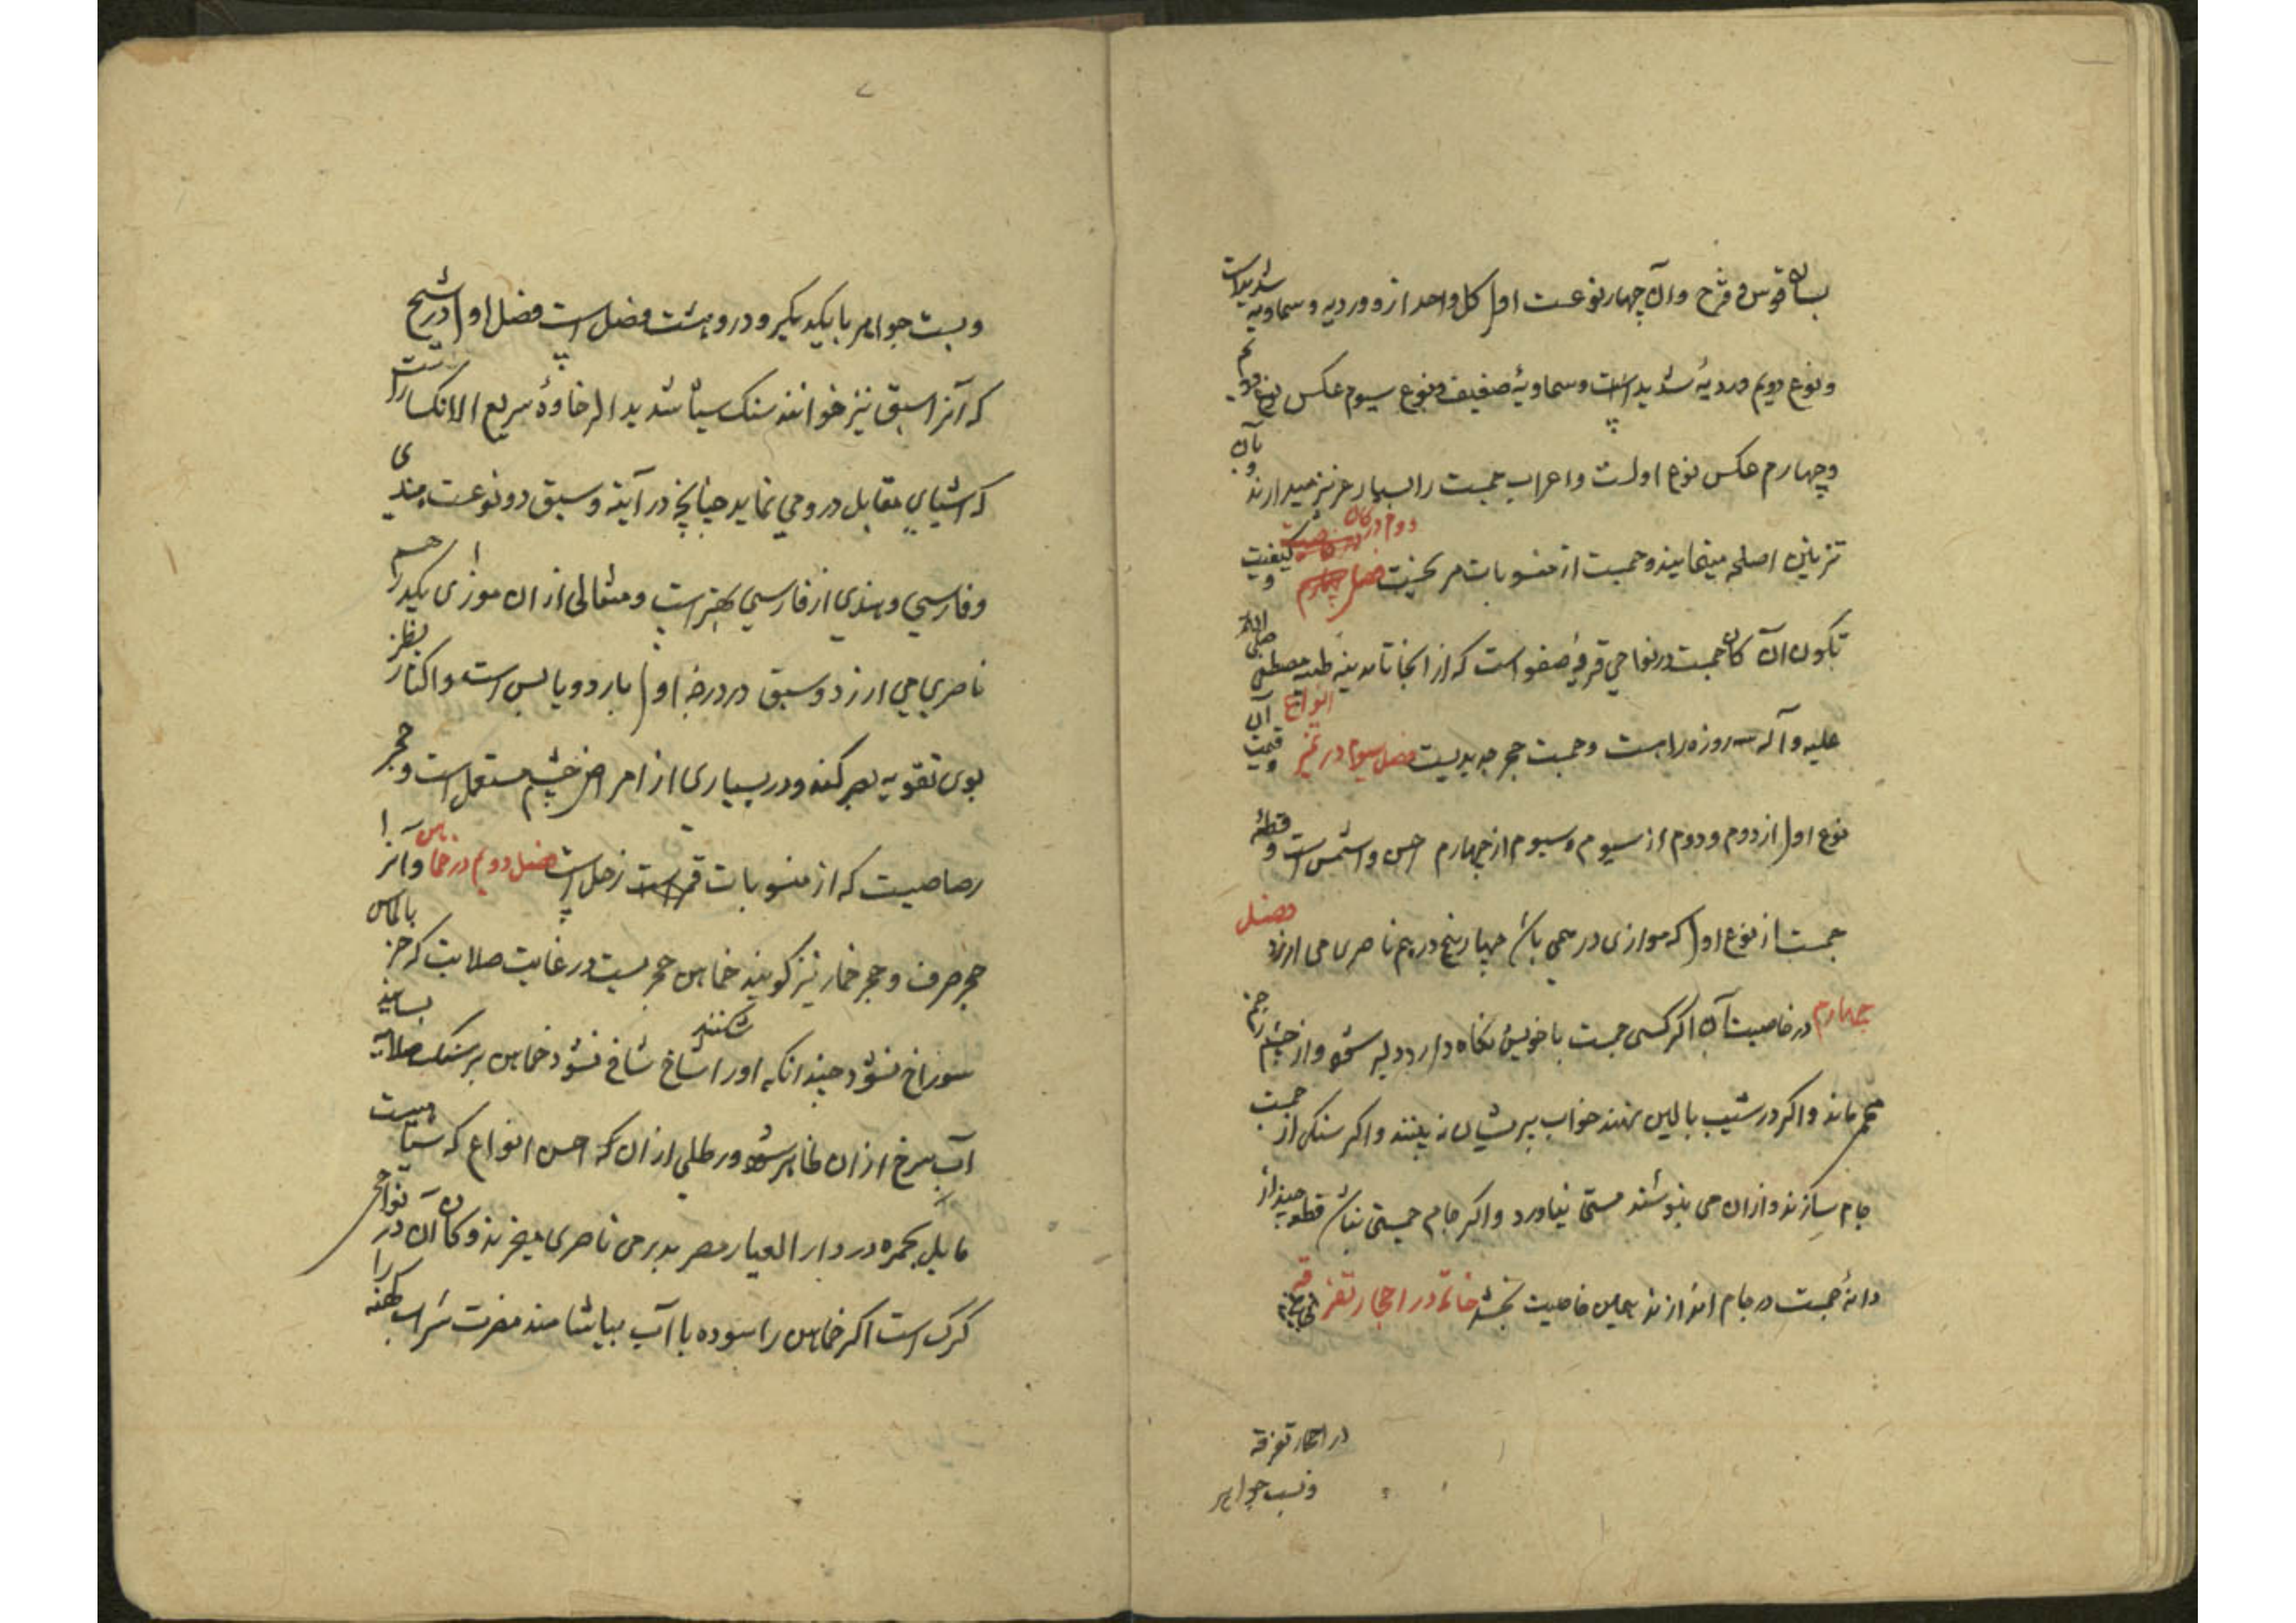 بسان قوس و قزح وآن چهار نوعست اول کل واحد از وردیه و سماویه شدیداست
و نوع دویم وردیهٔ شدید است و سماویهٔ ضعیف و نوع سیوم عکس نوع دویم
و چهارم عکس نوع اولست و اعراب جمست را بسیار عزیز میدارند و بآن
تزیین اسلحه مینمایند و جمست از منسوبات مریخست فصل دوم در کان و کیفیت
تکون آن کان جمست در نواحی قریهٔ صفو است که از انجا تا مدینه طیبه مصطفی صلی الله
علیه و آله سه روزه راهست و جمست حجر جدیدیست فصل سیوم در تمیز انواع آن و قیمت
نوع اول از دوم و دوم از سیوم و سیوم از چهارم احسن و اثمن است و قطعهٔ
جمست از نوع اول که موازی درهمی باشد چهار پنج درهم ناصری می ارزد فصل
چهارم در خاصیت آن اکر کسی جمست با خویش نکاه دارد دلیر شود و از چشم زخم
محروس ماند و اکر در شیب بالین نهند خواب پریشان نه بینند و اکر سنکی از جمست
جام سازند و ازان می بنوشند مستی نیاورد و اکر جام جمستی نباشد قطعهٔ چند از
دانهٔ جمست در جام اندازند همین خاصیت بخشد خاتمه در احجار متفرقه
در احجار متفرقه
و نسب جواهر
۷
و نسبت جواهر با یکدیکر و درو هشت فصل است فصل اول در شبح
که آنرا سبق نیز خوانند سنک سیاه شدید الرخاوهٔ سریع الانکسارست
که اشیای مقابل در و می نماید چنانچه در آینه و سبق دو نوعست هندی
و فارسی و هندی از فارسی بهتر است و مثقالی از ان موازی یکدرهم
ناصری می ارزد و سبق در درجه اول بارد و یابس است و اکثار نظر
بوی تقویه بصر کند و در بسیاری از امراض چشم مستعمل است و حجر
رصاصیست که از منسوبات زحل است فصل دویم در خماهن و آنرا
حجر صرف و حجر خمار نیز کویند خماهن حجریست در غایت صلابت که جز بالماس
سوراخ نشود چندانکه اورا شاخ شاخ نشود شکنند خماهن بر سنک صلابه بسایند
آب سرخ ازان ظاهر شود و رطلی ازان که احسن انواع که سیاهست
مایل بحمره در دار العیار مصر بدرمی ناصری میخرند و کان آن در نواحی
کرک است اکر خماهن را سوده با آب بیاشامند مضرت شراب کهنه را